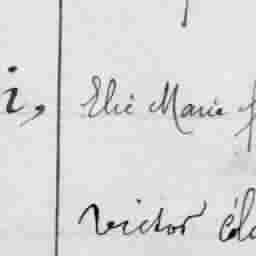 i, Elie Marie
victor